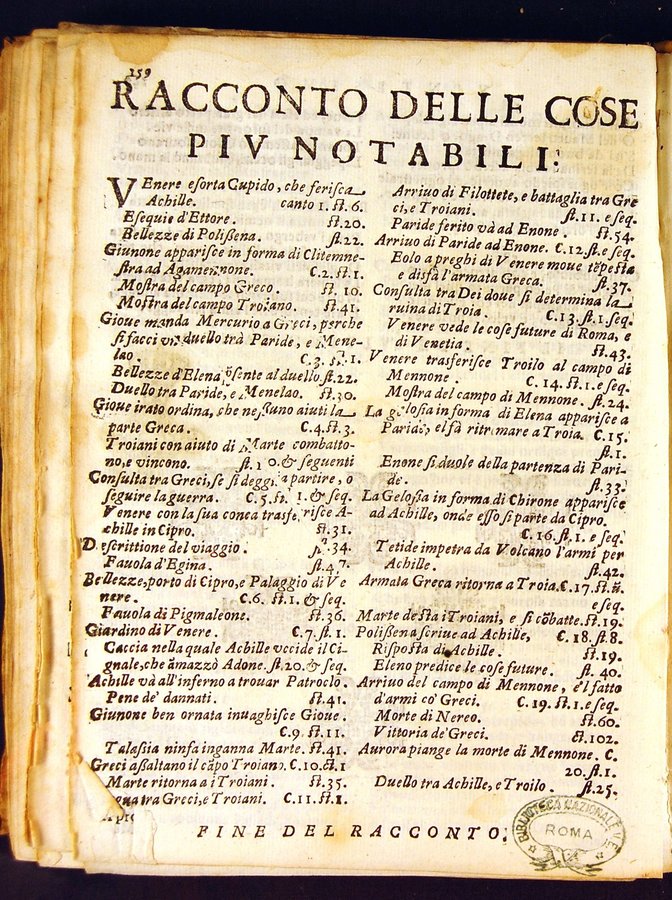 259
RACCONTO DELLE COSE
PIV NOTABILI:
VEnere esorta Cupido, che ferisca
Achille. canto 1. st.6.
Esequie d'Ettore. st.20.
Bellezze di Polißena. st.22.
Giunone apparisce in forma di Clitemne-
stra ad Agamennone. C.2.st.1.
Mostra del campo Greco. st. 10.
Mostra del campo Troiano. st.41.
Gioue manda Mercurio a Greci, perche
si facci vn duello trà Paride, e Mene-
lao. C.3. st.1.
Bellezze d'Elena p̃sente al duello.st.22.
Duello tra Paride, e Menelao. st.30.
Gioue irato ordina, che neßuno aiuti la
parte Greca. C.4.st.3.
Troiani con aiuto di Marte combatto-
no, e vincono. st. & seguenti
Consulta tra Greci, se si deggia partire, o
seguire la guerra. C.5.st. 1.& seq.
Venere con la sua conca trasferisce A-
chille in Cipro. st.31.
Descrittione del viaggio. st.34.
Fauola d'Egina. st.47.
Bellezze, porto di Cipro, e Palaggio di Ve
nere. C.6. st.1. & seq.
Fauola di Pigmaleone. st.36.
Giardino di Venere. C.7.st.1.
Caccia nella quale Achille vccide il Ci-
gnale, che āmazzò Adone. st.20.& seq.
Achille và all'inferno a trouar Patroclo.
Pene de' dannati. st.41.
Giunone ben ornata inuaghisce Gioue.
C.9. st.11.
Talaßia ninfa inganna Marte. st.41.
Greci aßaltano il cāpo Troiano. C.10.st.1
Marte ritorna a i Troiani. st.35.
tra Greci, e Troiani. C.11.st.1.
Arriuo di Filottete, e battaglia tra Gre
ci, e Troiani. st.11. e seq.
Paride ferito và ad Enone. st.54.
Arriuo di Paride ad Enone. C.12.st.e seq.
Eolo a preghi di Venere moue tẽpesta
e disfà l'armata Greca. st.37.
Consulta tra Dei doue si determina la
ruina di Troia. C.13.st.1.seq.
Venere vede le cose future di Roma, e
di Venetia. st.43.
Venere trasferisce Troilo al campo di
Mennone. C. 14. st.1.e seq.
Mostra del campo di Mennone. st.24.
La gelosia in forma di Elena apparisce a
Paride, e'l fà ritornare a Troia. C.15.
st.1.
Enone si duole della partenza di Pari-
de. st.33.
La Gelosia in forma di Chirone apparisce
ad Achille, onde esso si parte da Cipro.
C.16.st.1. e seq.
Tetide impetra da Volcano l'armi per
Achille. st.42.
Armata Greca ritorna a Troia.C.17.st.
e seq.
Marte desta i Troiani, e si cōbatte.st.19.
Polißena scriue ad Achille, C.18.st.8.
Risposta di Achille. st.19.
Eleno predice le cose future. st. 40.
Arriuo del campo di Mennone, e'l fatto
d'armi co' Greci. C.19. st.1.e seq.
Morte di Nereo. st.60.
Vittoria de' Greci. st.102.
Aurora piange la morte di Mennone. C.
20.st.1.
Duello tra Achille, e Troilo. st.25.
FINE DEL RACCONTO.
BIBLIOTECA NAZIONALE
ROMA